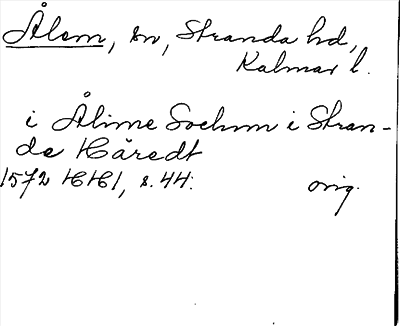 Ålem, sn, Stranda hd,
Kalmar l.
i Ålime Sochnn i Stran-
da Häredt
1572 HH1, s. 44.
orig.